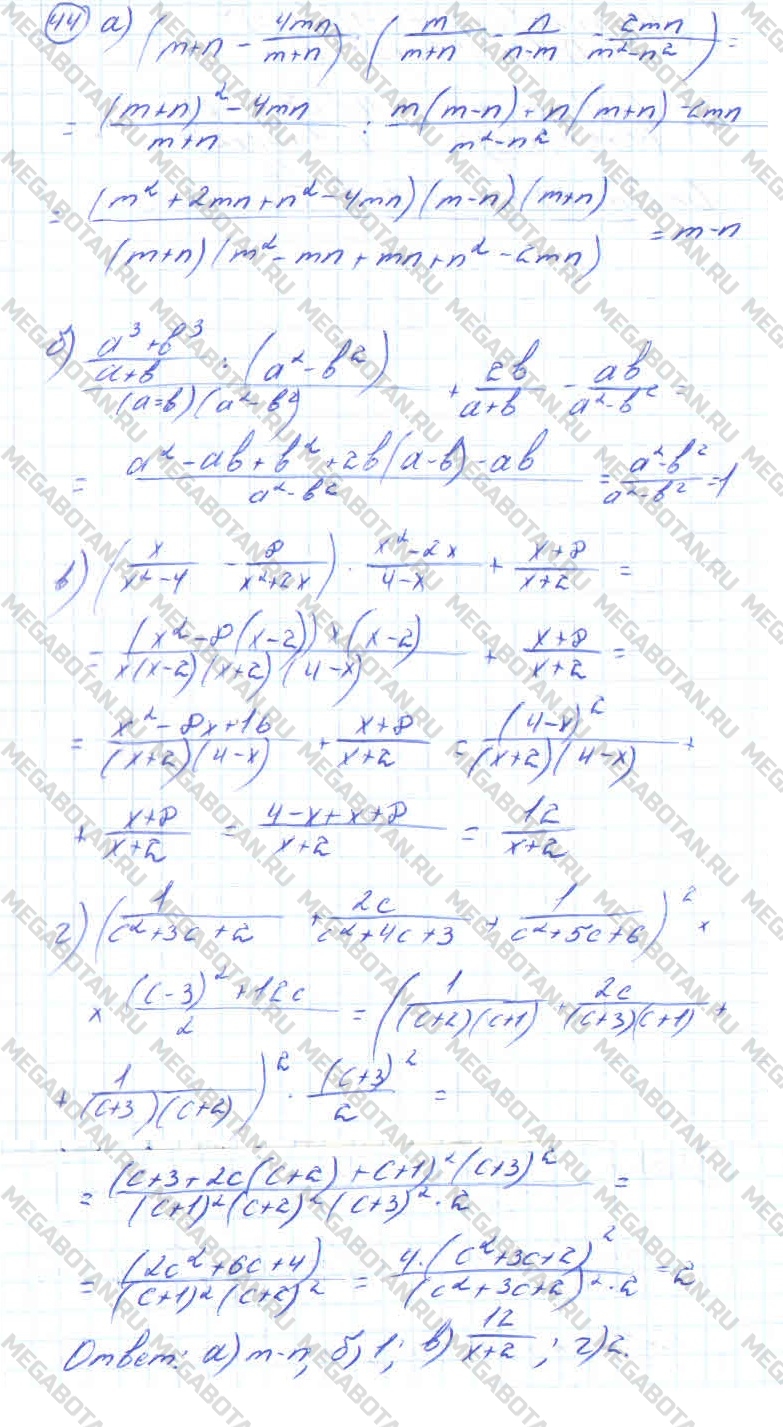 44 а) (m+n - 4mn/(m+n)) : (m/(m+n) - n/(n-m) - 2mn/(m²-n²)) =
= ((m+n)² - 4mn)/(m+n) : (m(m-n) + n(m+n) - 2mn)/(m²-n²)
= (m² + 2mn + n² - 4mn)(m-n)(m+n) / (m+n)(m² - mn + mn + n² - 2mn) = m-n
б) (a³+b³)/(a+b) : (a²-b²) / (a-b)(a²-b²) + 2b/(a+b) - ab/(a²-b²) =
= (a² - ab + b² + 2b(a-b) - ab)/(a²-b²) = (a²-b²)/(a²-b²) = 1
в) (x/(x²-4) - 8/(x²+2x)) · (x²-2x)/(4-x) + (x+8)/(x+2) =
= (x² - 8(x-2)) x (x-2) / x(x-2)(x+2)(4-x) + (x+8)/(x+2) =
= (x² - 8x + 16)/(x+2)(4-x) + (x+8)/(x+2) = (4-x)²/(x+2)(4-x) +
+ (x+8)/(x+2) = (4-x+x+8)/(x+2) = 12/(x+2)
г) (1/(c²+3c+2) + 2c/(c²+4c+3) + 1/(c²+5c+6))² ×
× ((c-3)² + 12c)/2 = (1/(c+2)(c+1) + 2c/(c+3)(c+1) +
+ 1/(c+3)(c+2))² · (c+3)²/2 =
= (c+3+2c(c+2)+c+1)² (c+3)² / (c+1)² (c+2)² (c+3)² · 2 =
= (2c²+6c+4)/(c+1)² (c+2)² = 4·(c²+3c+2)²/(c²+3c+2)² · 2 = 2
Ответ: а) m-n; б) 1; в) 12/(x+2); г) 2.